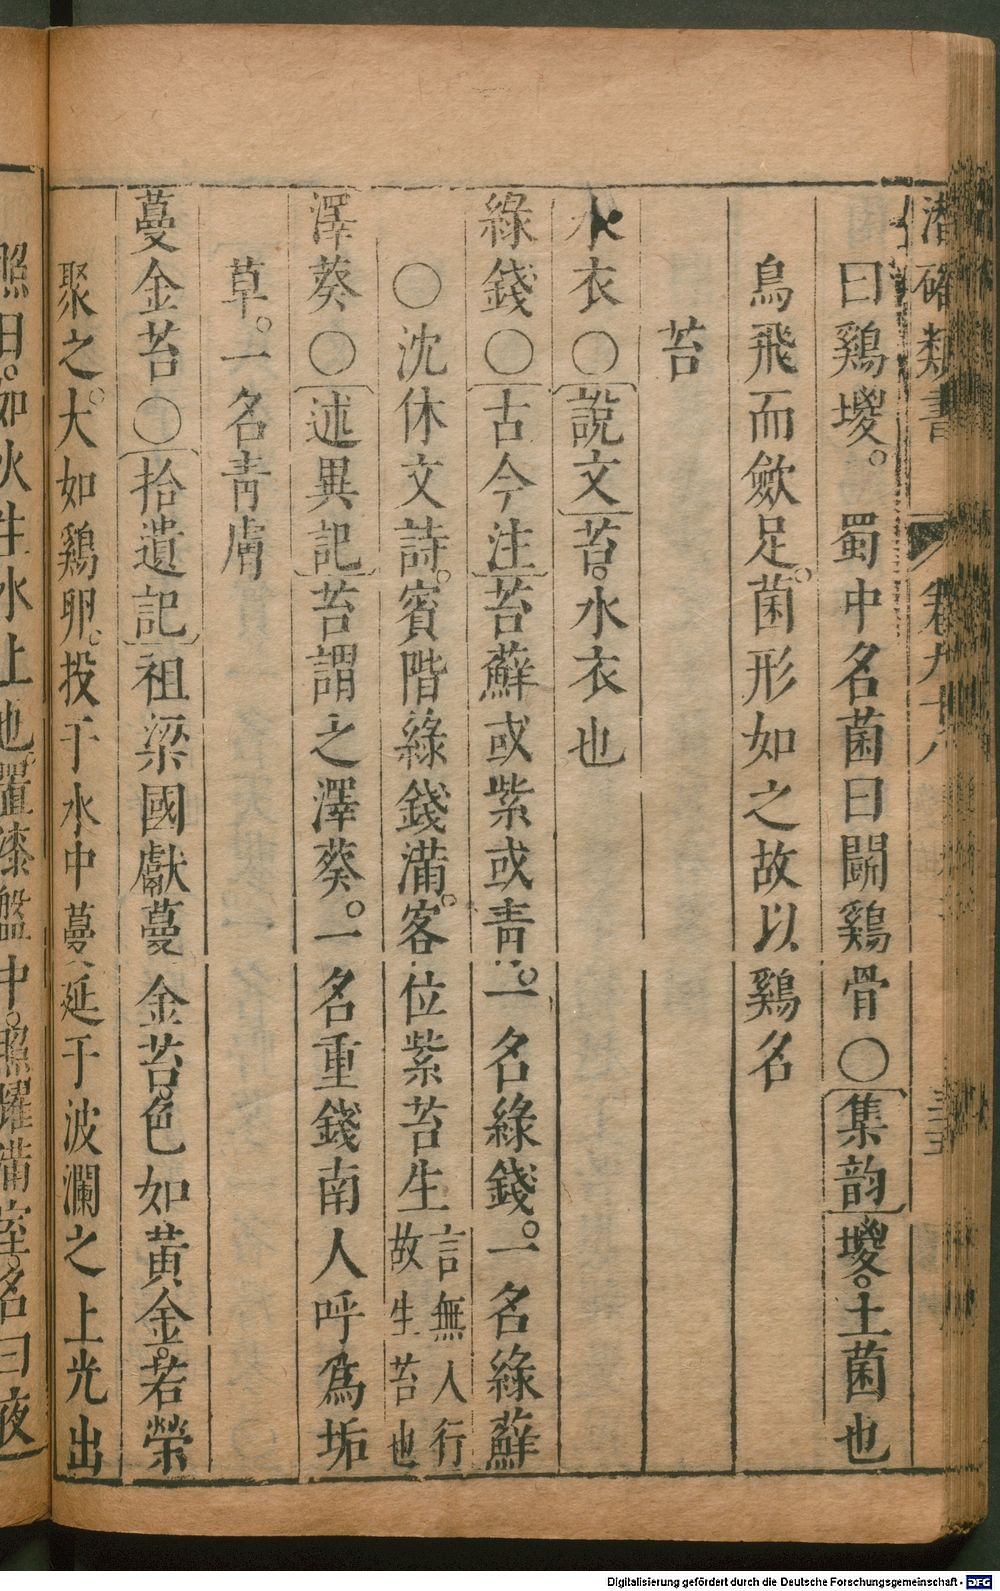 潛確類書 卷九十八 三五
曰鷄㙡。蜀中名菌曰鬭鷄骨〇集韵㙡。土菌也
鳥飛而斂足。菌形如之故以鷄名
苔
水衣〇說文苔。水衣也
綠錢〇古今注苔蘚或紫或青。一名綠錢。一名綠蘚
〇沈休文詩。賓階綠錢滿。客位紫苔生言無人行故生苔也
澤葵〇述異記苔謂之澤葵。一名重錢南人呼爲垢
草。一名青膚
蔓金苔〇拾遺記祖梁國獻蔓金苔。色如黃金。若螢
聚之。大如鷄卵。投于水中蔓延于波瀾之上光出
照日。如火生水上也。置漆盤中。照耀滿室。名曰夜
Digitalisierung gefördert durch die Deutsche Forschungsgemeinschaft - DFG